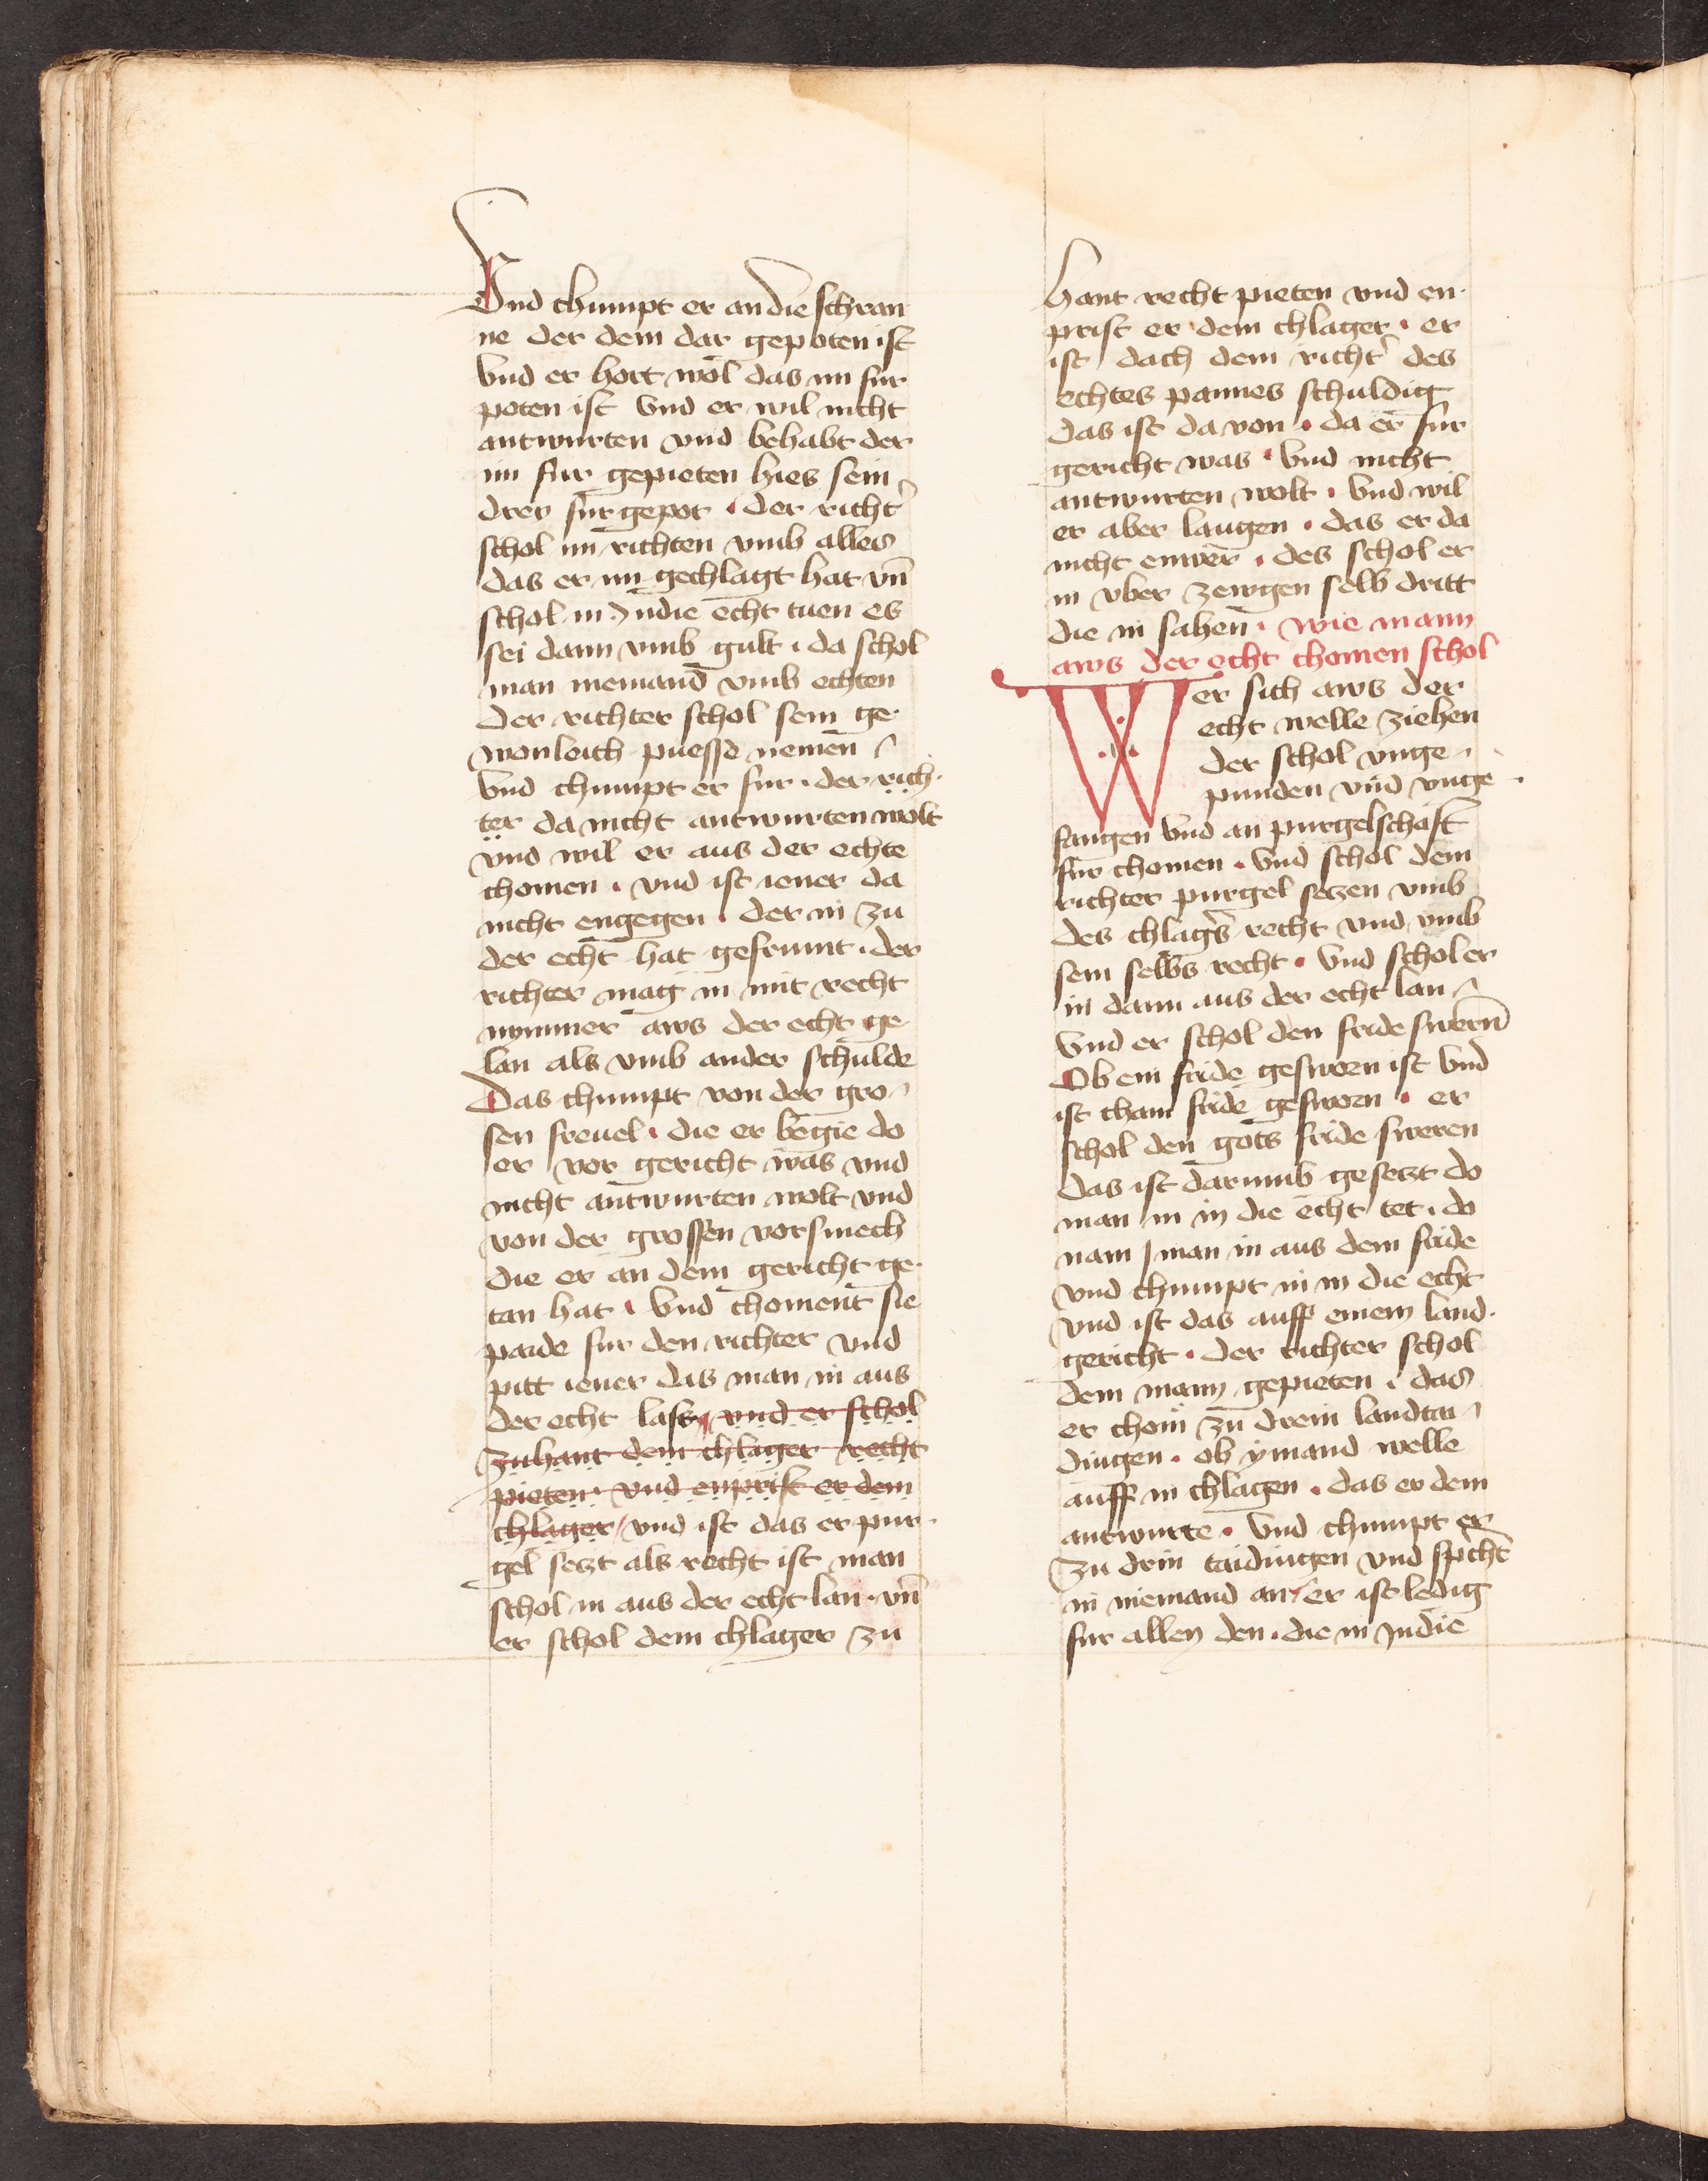 Vnd chumpt er an die schran
ne der dem dar gepoten ist
Vnd er hort wol das im fur
poten ist Vnd er wil nicht
antwurten vnd behabt der
im fur gepieten hies sein
drey fur gepot · der richt̾
schol im richten vmb alles
das er im gechlagt hat vn̄
schol in Indie echt tuen es
sei dann vmb gult · da schol
man niemand vmb echten
Der richter schol sein ge-
wonleich puesse nemen
Vnd chumpt er fur · der rich-
ter da nicht antwurten wolt
vnd wil er aus der echte
chomen · vnd ist iener da
nicht engegen · der in zu
der echt hat gefrumt · der
richter mag in mit recht
nymmer aws der echt ge
lan als vmb ander schulde
Das chumpt von der gro-
sen freuel · die er begie do
er vor gericht was vnd
nicht antwurten wolt vnd
von der grossen vorsmech
die er an dem gericht ge-
tan hat · Vnd choment sie
paide fur den richter vnd
pitt iener das man in aus
der echt lass vnd er schol
zuhant dem chlager recht
pieten · vnd enprist er dem
chlager vnd ist das er pur-
gel setzt als recht ist man
schol in aus der echt lan · vn̄
er schol dem chlager zu
hant recht pieten vnd en-
prist er dem chlager · er
ist dach dem richt̾ des
echtes pannes schuldig
das ist da von · da er fur
gericht was · Vnd nicht
antwurten wolt · Vnd wil
er aber laugen · das er da
nicht enwer · des schol er
in vber zewgen selb dritt
die in sahen · wie mann
aws der echt chomen schol
Wer sich aws der
echt welle ziehen
der schol vnge-
punden vnd vnge-
fangen Vnd an purgelschaft
fur chomen · Vnd schol dem
richter purgel setzen vmb
des chlag̾s recht vnd vmb
sein selbs recht · Vnd schol er
in dann aus der echt lan
Vnd er schol den fride swern
Ob ein fride gesworn ist Vnd
ist chain fride gesworn · er
schol den gots fride sweren
das ist darumb gesetzt do
man in in die echt tet · do
nam man in aus dem fride
vnd chumpt in in die echt
vnd ist das auff einem land-
gericht · der richter schol
dem mann gepieten · das
er chom zu drein landtai-
dingen · ob ymand welle
auff in chlagen · das er dem
antwurte · Vnd chumpt er
zu drin taidingen vnd sp̾cht
in niemand an / er ist ledig
fur allen den · die in Indie